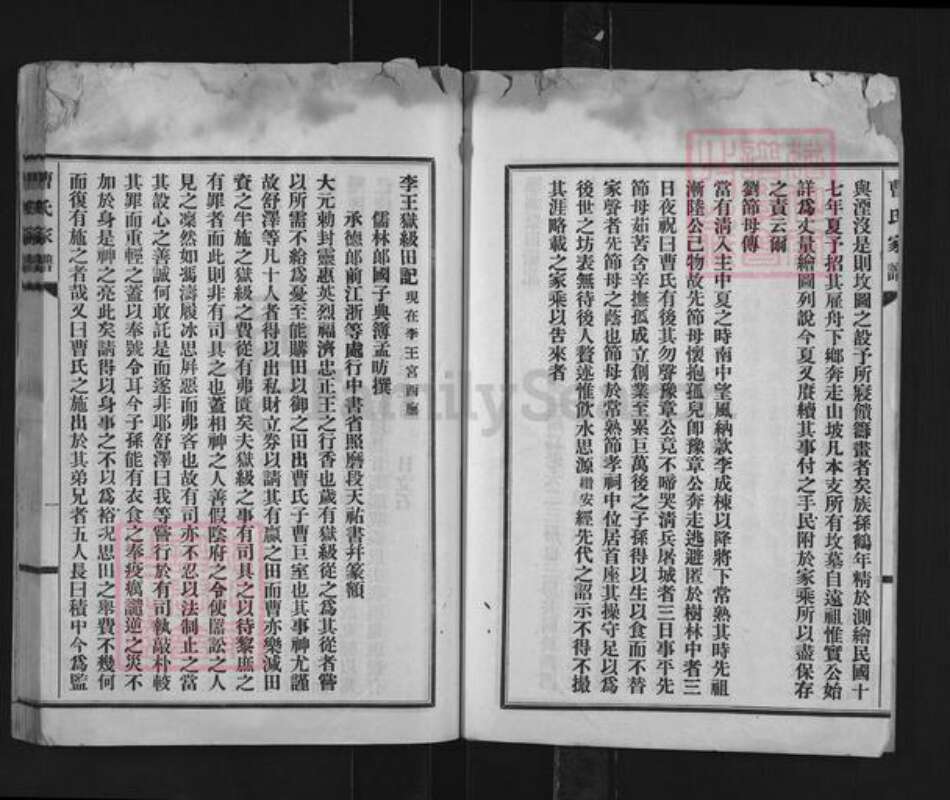 與湮沒是則坟圖之設予所寢饋籌畫者矣族孫鶴年精於測繪民國十
七年夏予招其雇舟下鄉奔走山坡凡本支所有坟墓自遠祖惟實公始
詳爲丈量繪圖列說今夏又賡續其事付之手民附於家乘所以盡保存
之責云爾
劉節母傳
當有淸入主中夏之時南中望風納款李成棟以降將下常熟其時先祖
漸陸公已物故先節母懷抱孤兒卽豫章公奔走逃避匿於樹林中者三
日夜祝曰曹氏有後其勿聲豫章公竟不啼哭淸兵屠城者三日事平先
節母茹苦含辛撫孤成立創業至累巨萬後之子孫得以生以食而不替
家聲者先節母之蔭也節母於常熟節孝祠中位居首座其操守足以爲
後世之坊表無待後人贅述惟飲水思源 安經先代之詔示不得不撮
其涯略載之家乘以告來者
曹氏家譜
李王獄級田記 現在李王宮西廡
儒林郎國子典簿孟昉撰
承德郎前江浙等處行中書省照磨段天祐書幷篆額
大元勅封靈惠英烈福濟忠正王之行香也歲有獄級從之爲其從者嘗
以所需不給爲憂至能購田以御之田出曹氏子曹巨室也其事神尤謹
故舒澤等凡十人者得以出私財立券以請其有贏之田而曹亦樂減田
資之半施之獄級之費從有弗匱矣夫獄級之事有司具之以待黎庶之
有罪者而此則非有司具之也蓋相神之人善假陰府之令使嚚訟之人
見之凜然如馮濤履冰思屏惡而弗客也故有司亦不忍以法制止之當
其設心之善誠何敢託是而遂非耶舒澤曰我等嘗行於有司執敲朴較
其罪而重輕之蓋以奉號令耳今子孫能有衣食之奉疫癘譴逆之災不
加於身是神之亮此矣請得以身事之不以爲裕況思田之舉費不幾何
而復有施之者哉又曰曹氏之施出於其弟兄者五人長曰積中今爲監
曹氏家譜
FamilySearch